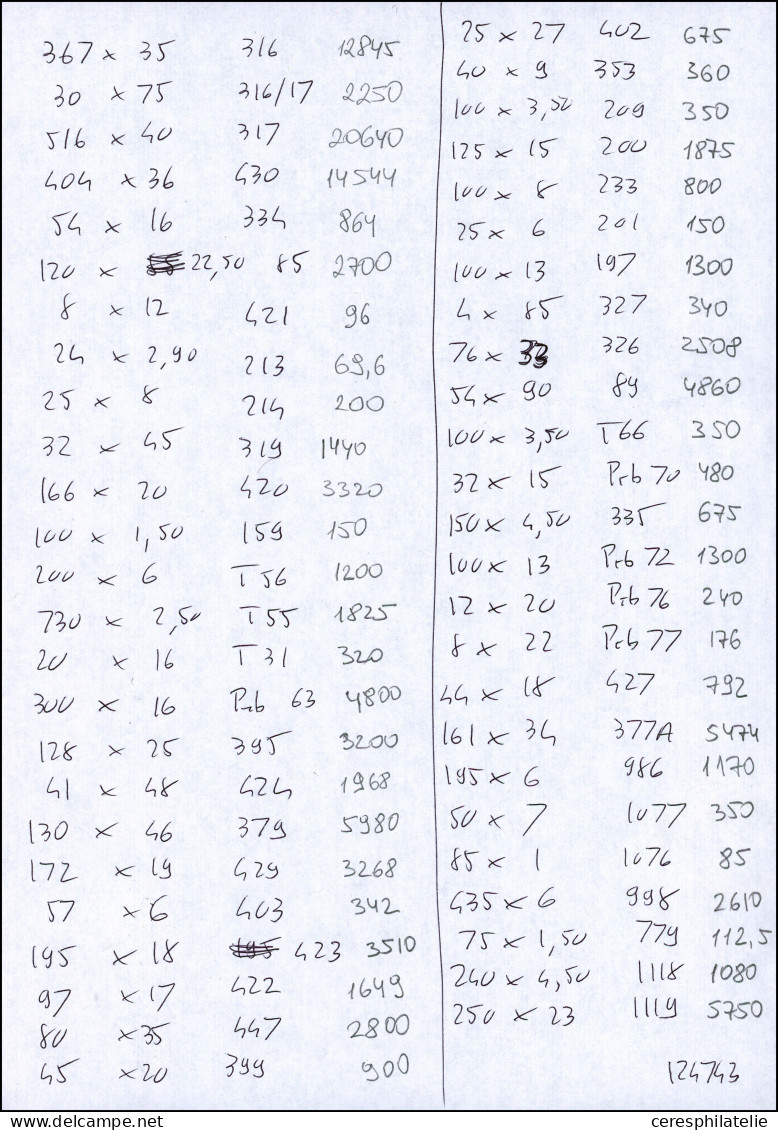 367 x 35 316 12845
30 x 75 316/17 2250
516 x 40 317 20640
404 x 36 430 14544
54 x 16 334 864
120 x 22,50 85 2700
8 x 12 421 96
24 x 2,90 213 69,6
25 x 8 214 200
32 x 45 319 1440
166 x 20 420 3320
100 x 1,50 159 150
200 x 6 T 56 1200
730 x 2,50 T 55 1825
20 x 16 T 31 320
300 x 16 Prb 63 4800
128 x 25 395 3200
41 x 48 424 1968
130 x 46 379 5980
172 x 19 429 3268
57 x 6 403 342
195 x 18 195 423 3510
97 x 17 422 1649
80 x 35 447 2800
45 x 20 399 900
25 x 27 402 675
40 x 9 353 360
100 x 3,50 209 350
125 x 15 200 1875
100 x 8 233 800
25 x 6 201 150
100 x 13 197 1300
4 x 85 327 340
76 x 33 326 2508
54 x 90 89 4860
100 x 3,50 T 66 350
32 x 15 Prb 70 480
150 x 4,50 335 675
100 x 13 Prb 72 1300
12 x 20 Prb 76 240
8 x 22 Prb 77 176
44 x 18 427 792
161 x 34 377A 5474
195 x 6 986 1170
50 x 7 1077 350
85 x 1 1076 85
435 x 6 998 2610
75 x 1,50 779 112,5
240 x 4,50 1118 1080
250 x 23 1119 5750
124743
ceresphilatelie